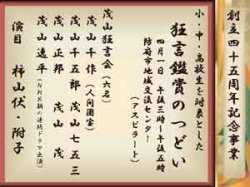 創立四十五周年記念事業
小・中・高校生を対象とした
狂言鑑賞のつどい
四月一日 午後三時～午後五時
防府市地域交流センター
(アスピラート)
茂山狂言会(六名)
茂山千作(人間国宝)
茂山千五郎 茂山七五三
茂山正邦 茂山茂
茂山逸平(NHK朝の連続ドマ出演)
演目 柿山伏・附子